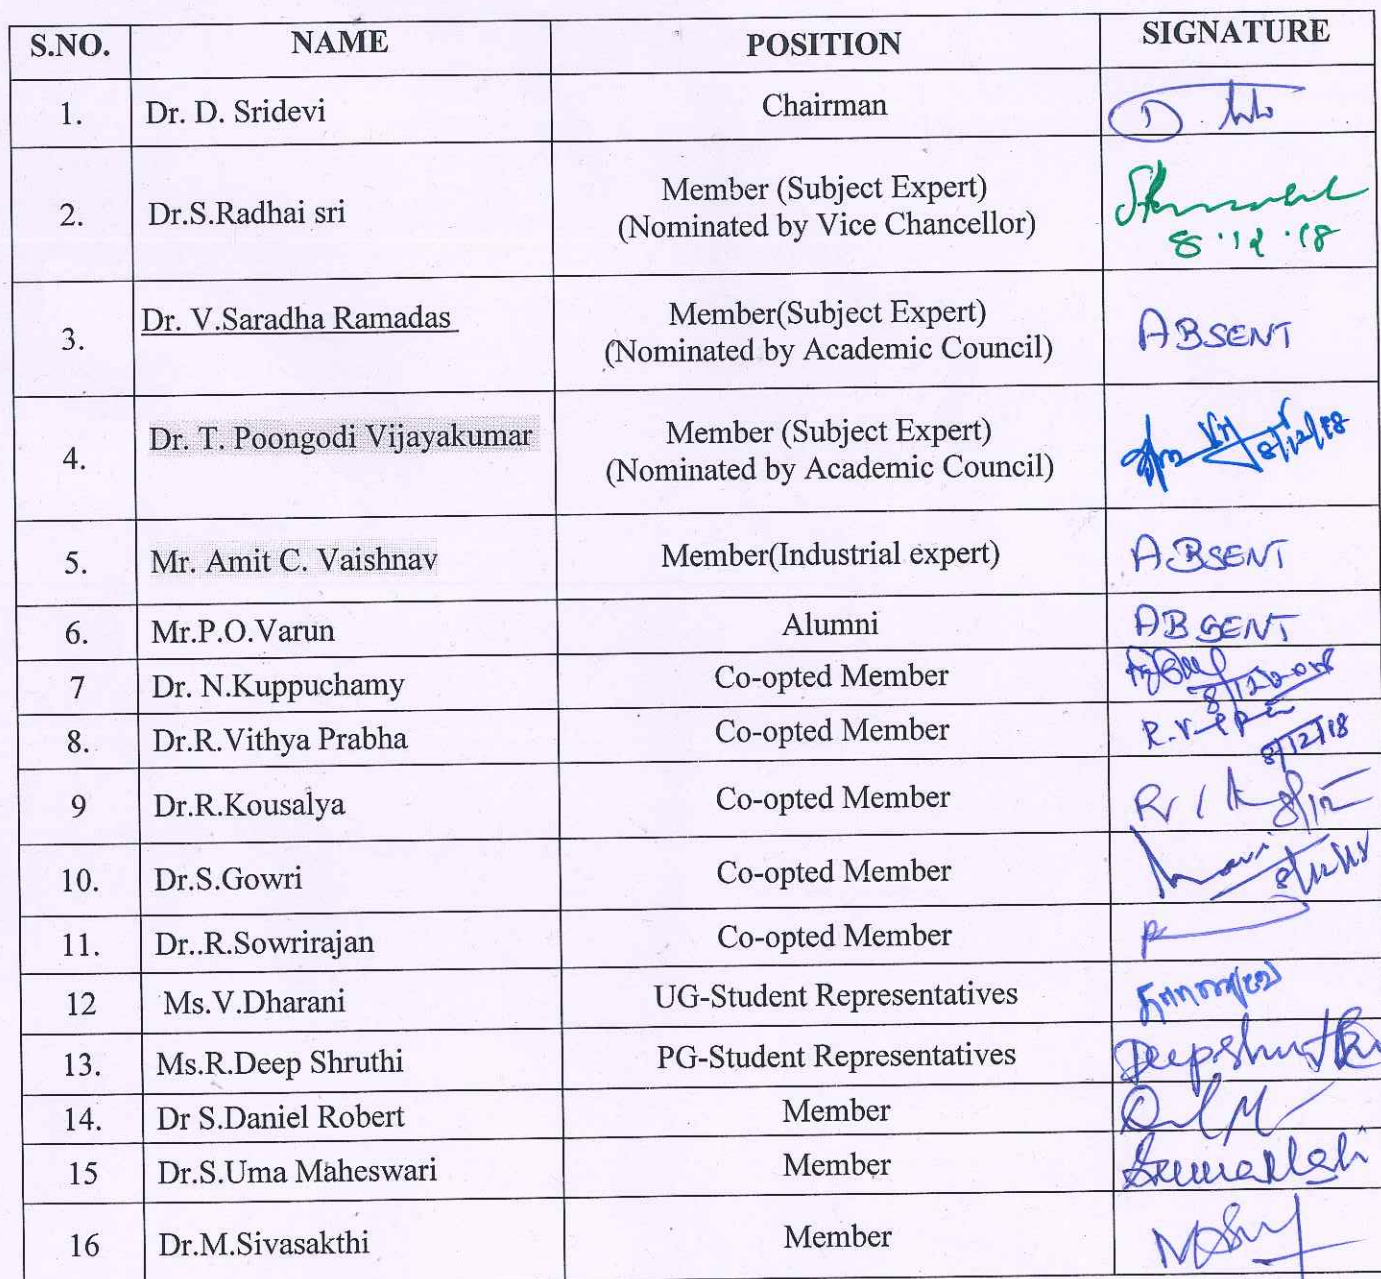 S.NO. NAME POSITION SIGNATURE
1. Dr. D. Sridevi Chairman D.
2. Dr.S.Radhai sri Member (Subject Expert)
(Nominated by Vice Chancellor) 8.12.18
3. Dr. V.Saradha Ramadas Member(Subject Expert)
(Nominated by Academic Council) ABSENT
4. Dr. T. Poongodi Vijayakumar Member (Subject Expert)
(Nominated by Academic Council) 8/12/18
5. Mr. Amit C. Vaishnav Member(Industrial expert) ABSENT
6. Mr.P.O.Varun Alumni ABSENT
7 Dr. N.Kuppuchamy Co-opted Member 8/12/2018
8. Dr.R.Vithya Prabha Co-opted Member 8/12/18
9 Dr.R.Kousalya Co-opted Member 8/12
10. Dr.S.Gowri Co-opted Member 8/12/18
11. Dr..R.Sowrirajan Co-opted Member
12 Ms.V.Dharani UG-Student Representatives
13. Ms.R.Deep Shruthi PG-Student Representatives Deepshruthi
14. Dr S.Daniel Robert Member
15 Dr.S.Uma Maheswari Member
16 Dr.M.Sivasakthi Member